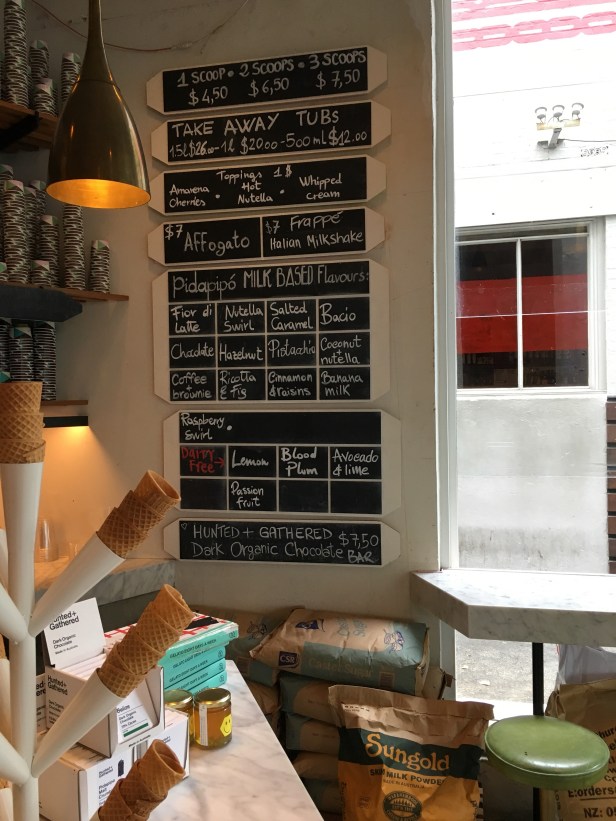 1 SCOOP • 2 SCOOPS • 3 SCOOPS
$4,50 $6,50 $7,50
TAKE AWAY TUBS
1.5L $26.00 - 1L $20.00 - 500 ml $12.00
Toppings 1$
Amarena Cherries • Hot Nutella • Whipped Cream
$7 AFFogato
$7 Frappé
Italian Milkshake
Pidapipó MILK BASED Flavours:
Fior di Latte
Nutella Swirl
Salted Caramel
Bacio
Chocolate
Hazelnut
Pistachio
Coconut + nutella
Coffee + brownie
Ricotta & Fig
Cinnamon & raisins
Banana milk
Raspberry Swirl •
Dairy Free →
Lemon
Blood Plum
Avocado & lime
Passion fruit
HUNTED + GATHERED $7,50
Dark Organic Chocolate BAR
Hunted+
Gathered
Dark Organic
Chocolate
Hunted+
Gathered
CSR
Sungold
MILK POWDER